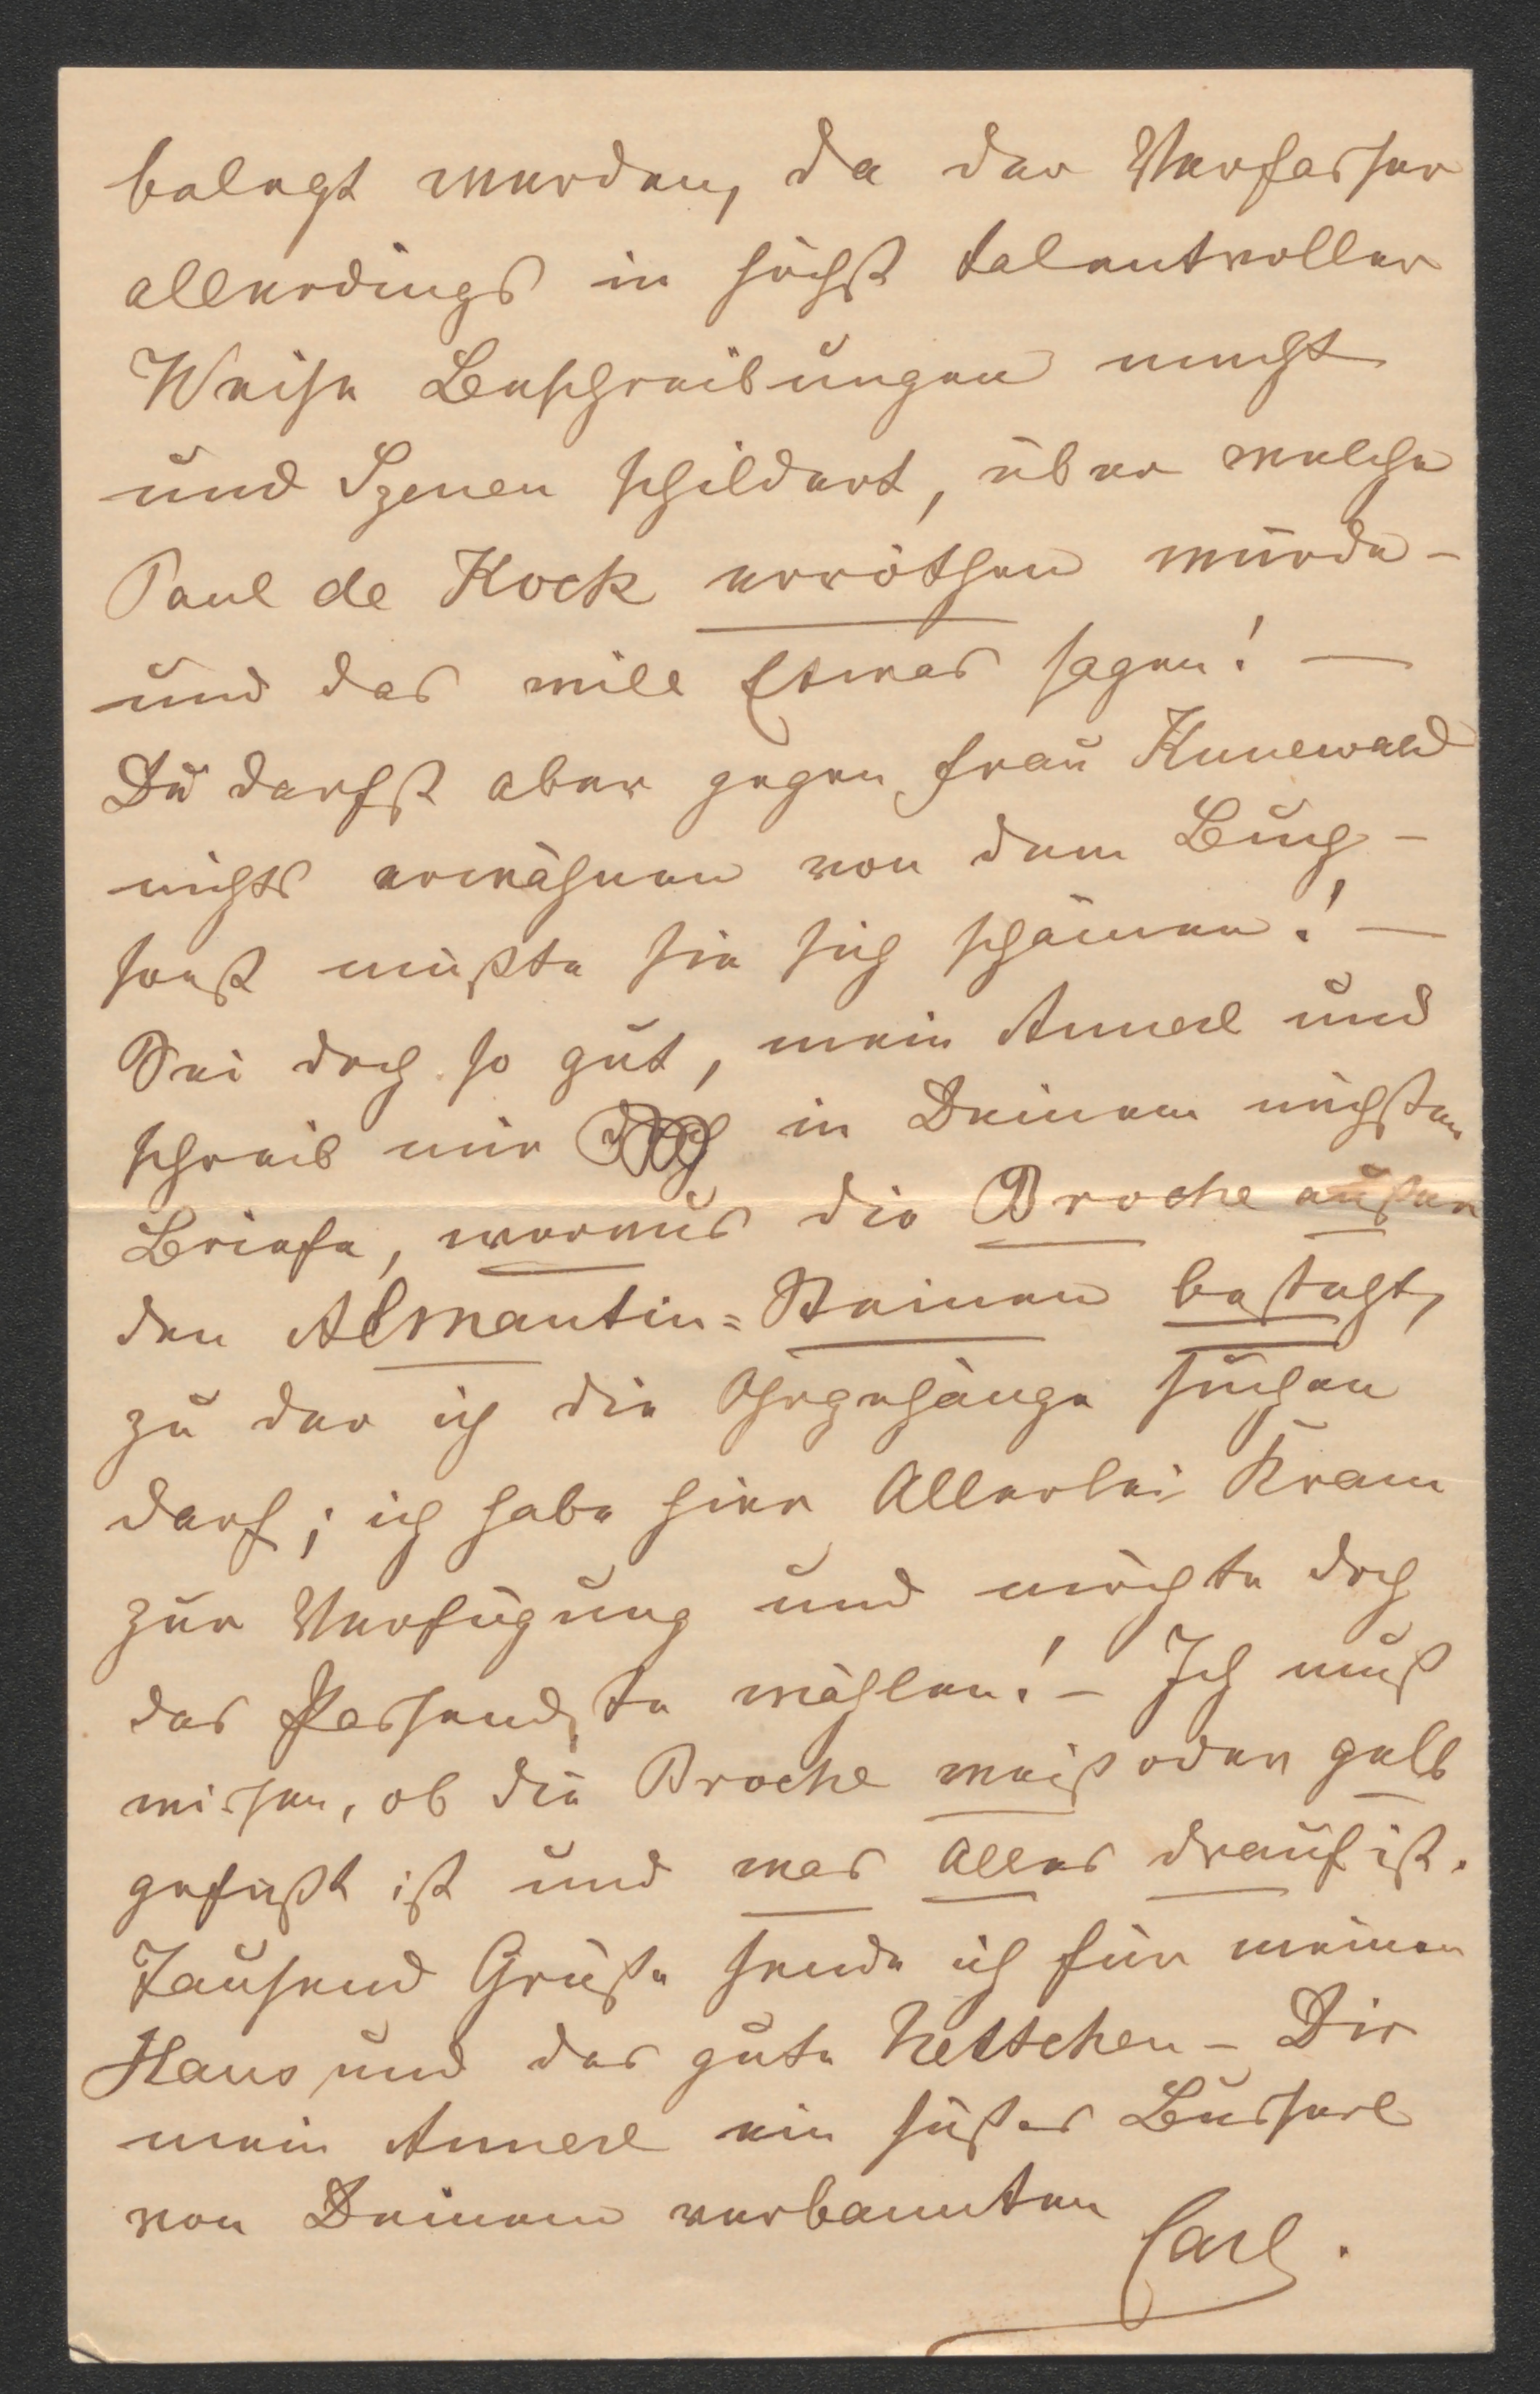 belegt wurden, da der Verfasser
allerdings in höchst talentvoller
Weise Beschreibungen macht
und Szenen schildert, über welche
Paul de Kock erröthen würde –
und das will Etwas sagen! —
Du darfst aber gegen Frau Kunewald
nichts erwähnen von dem Buch –
sonst müßte sie sich schämen! —
Sei doch so gut, mein Annerl und
schreib mir in Deinem nächsten
Briefe, woraus die Broche außer
den Almantin=Steinen besteht,
zu der ich die Ohrgehänge suchen
darf; ich habe hier Allerlei Kram
zur Verfügung und möchte doch
das Passendste wählen! – Ich muß
wissen, ob die Broche weiß oder gelb
gefaßt ist und was Alles drauf ist.
Tausend Grüße sende ich für meinen
Hans und das gute Nettchen – Dir
mein Annerl ein süßes Busserl
von Deinem verbannten
Carl.